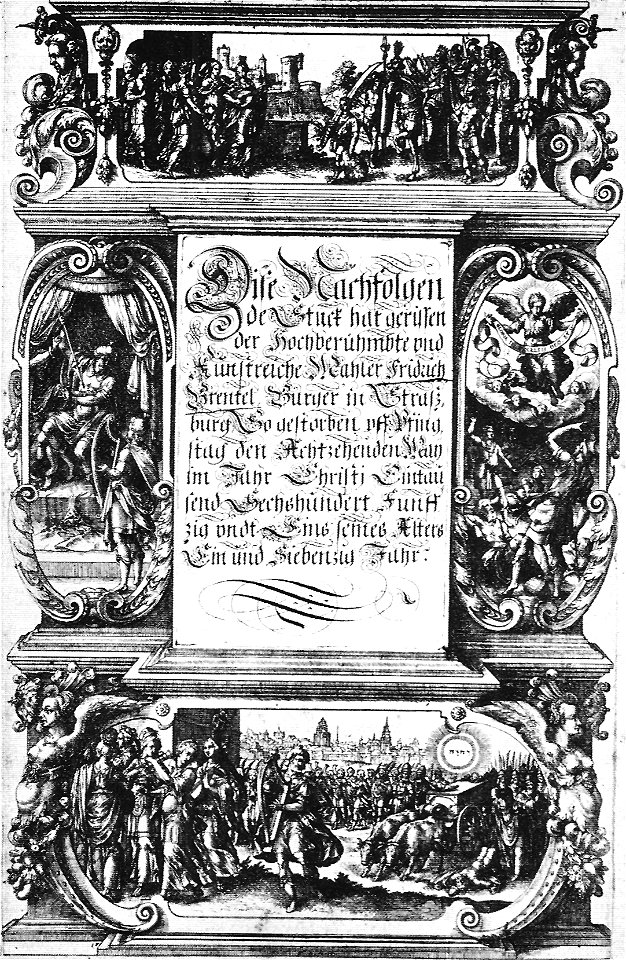 Dise Nachfolgen
de Stuck hat gerissen
der Hochberühmbte vnd
Kunstreiche Mahler Fridrich
Brentel Burger in Straß,
burg So gestorben vff Pfing
stag den Achtzehenden May
im Jahr Christi Eintau
send Sechshundert Funff
zig vndt Eins seines Alters
Ein und Siebenzig Jahr:
יהוה